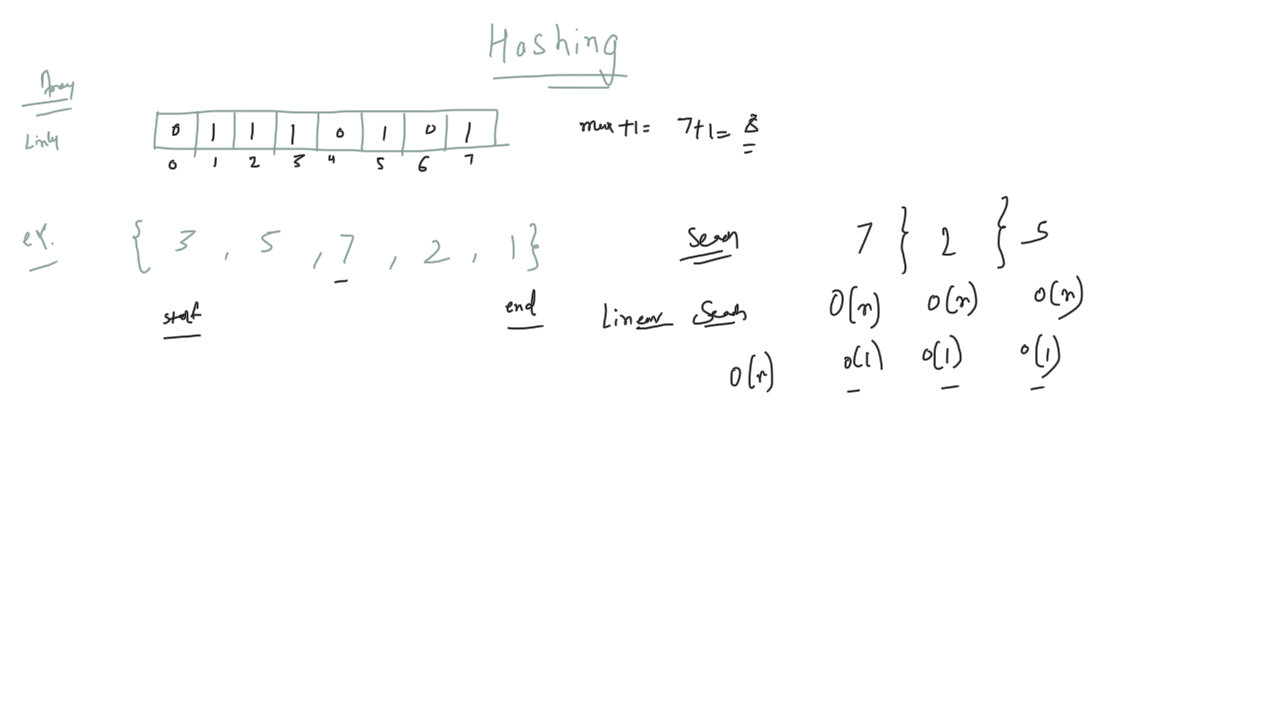 Hashing
Array
Linly
0 1 1 1 0 1 0 1
0 1 2 3 4 5 6 7
max+1= 7+1= 8
ex. { 3 , 5 , 7 , 2 , 1 }
Search 7 } 2 } 5
start end
Linear Search O(n) O(n) O(n)
O(n) O(1) O(1) O(1)